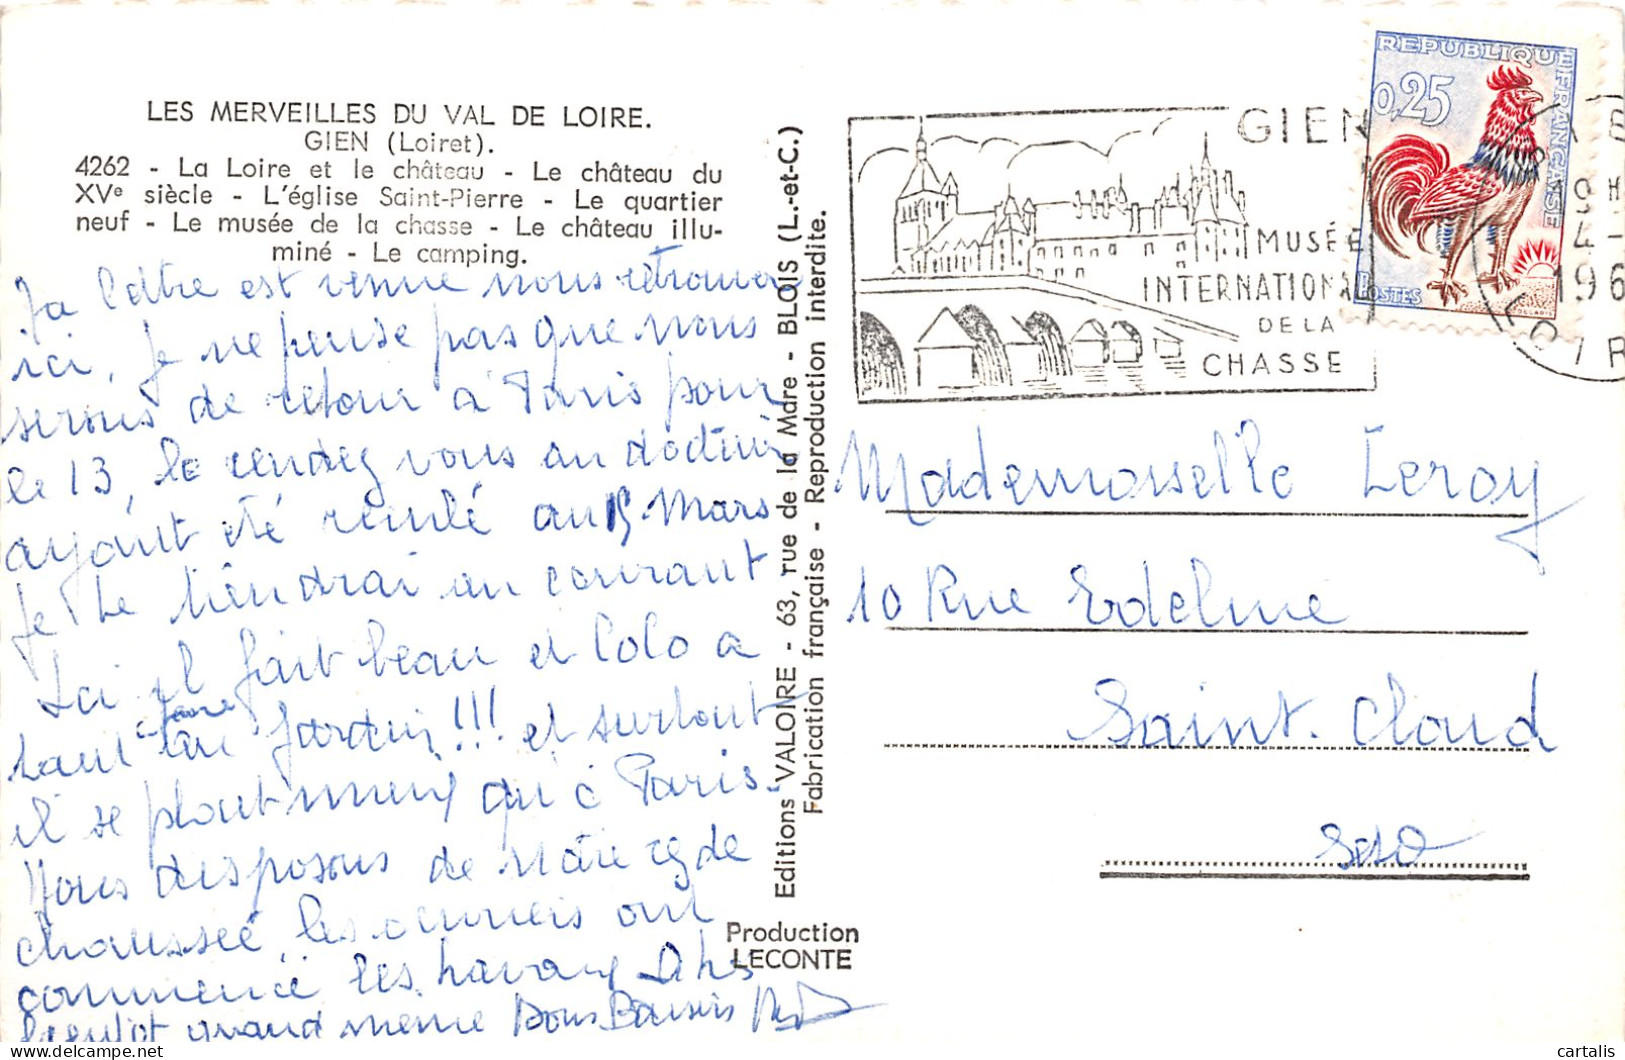 LES MERVEILLES DU VAL DE LOIRE.
GIEN (Loiret).
4262 - La Loire et le château - Le château du
XVe siècle - L'église Saint-Pierre - Le quartier
neuf - Le musée de la chasse - Le château illu-
miné - Le camping.
lettre est venue nous retrouver
ici, je ne pense pas que nous
serons de retour à Paris pour
le 13, le rendez vous au
ayant été au 19 Mars
Je te tiendrai au courant
Ici il fait beau et Lolo a
faire
tant au jardin!!! et surtout
il se plait mieux qu'à Paris.
Nous disposons de notre rez de
chaussée, les ont
commencé les travaux A
bientôt quand même Bons Baisers
Editions VALOIRE - 63, rue de la Mare - BLOIS (L.-et-C.)
Fabrication française - Reproduction interdite.
Production
LECONTE
GIEN
MUSÉE
INTERNATIONA
DE LA
CHASSE
REPUBLIQUE FRANÇAISE
0,25
POSTES
DECARIS
196
Mademoiselle Leroy
10 Rue Edeline
Saint. Cloud
S&O
cartalis